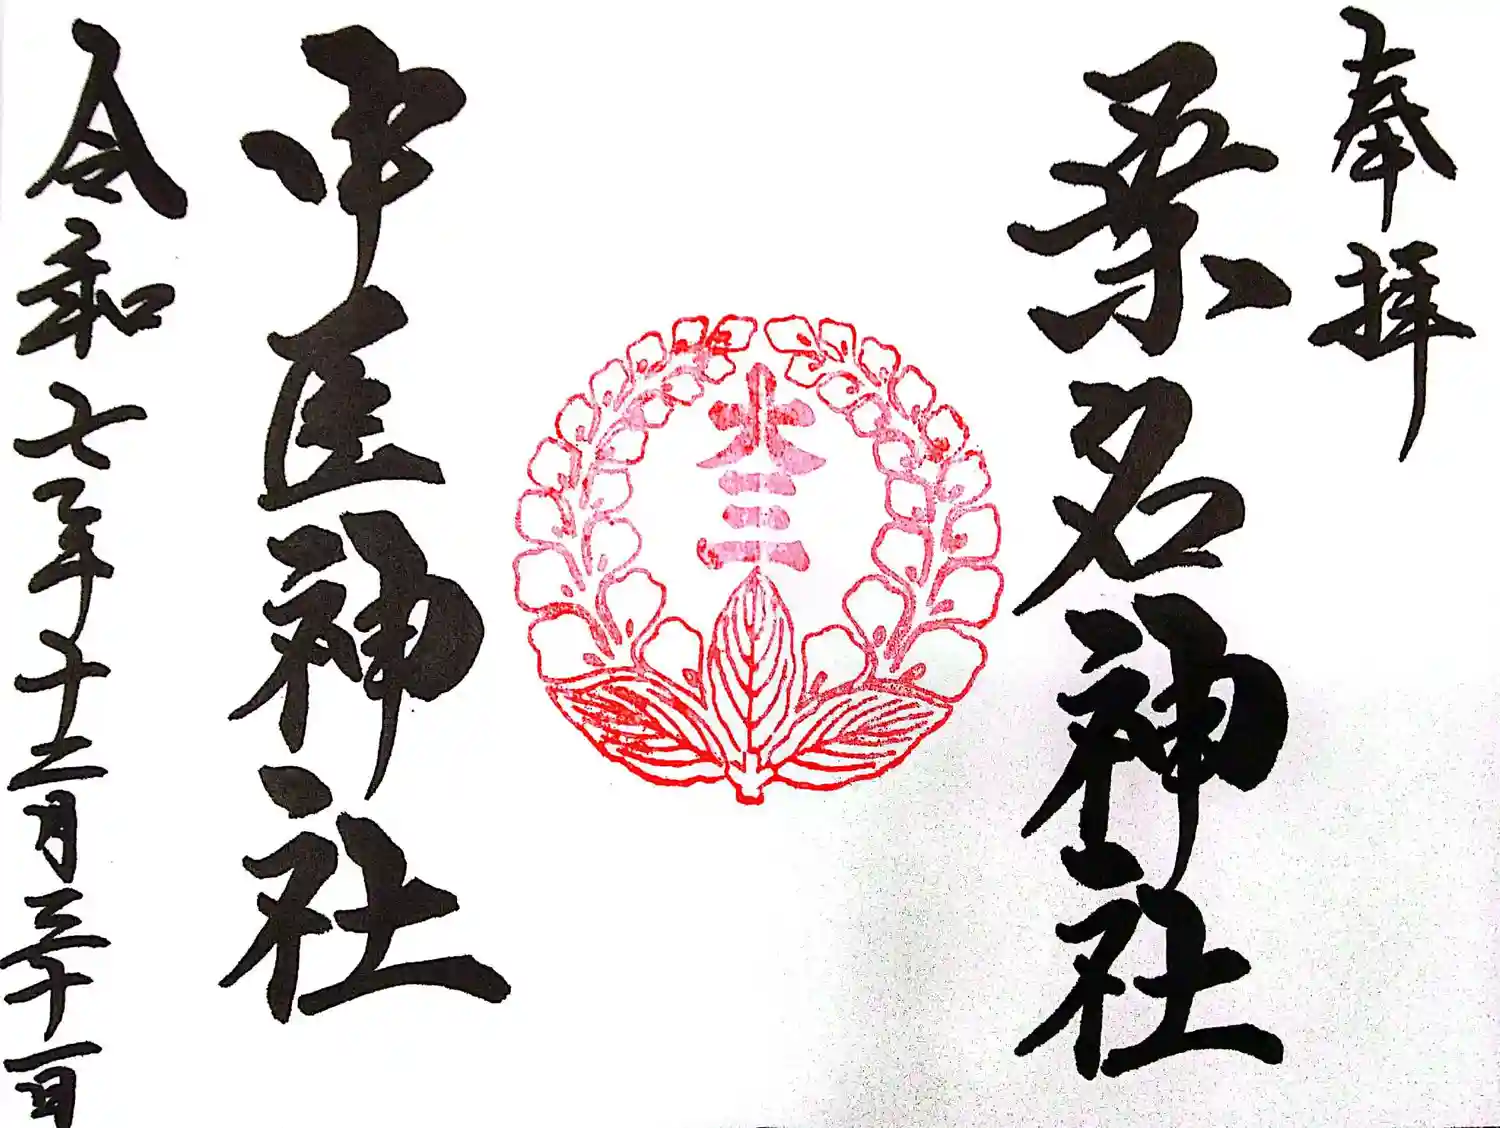 奉拝
桑名神社
中臣神社
令和七年十二月三十一日